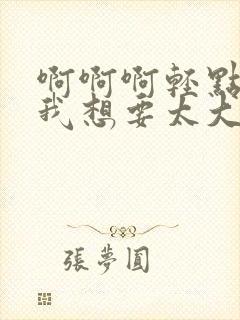 啊啊啊轻點
我想要太大
張夢圓